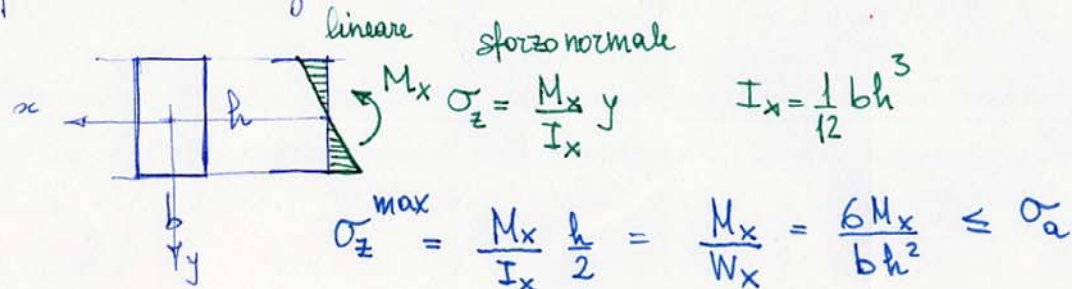 lineare
sforzo normale
x
h
M_x
σ_z = M_x / I_x y
I_x = 1/12 bh³
b
y
σ_z^max = M_x / I_x h/2 = M_x / W_x = 6M_x / bh² ≤ σ_a